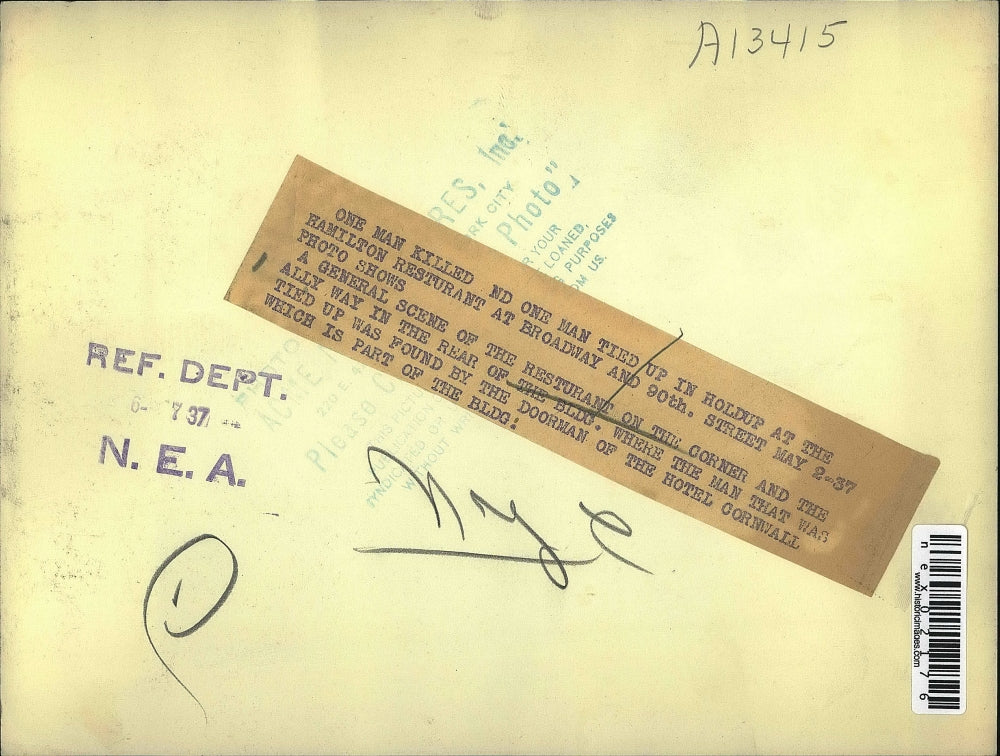 A13415
RES, Inc.
RK CITY
Photo"
R YOUR
LOANED.
PURPOSES
OM US.
ONE MAN KILLED ND ONE MAN TIED UP IN HOLDUP AT THE
HAMILTON RESTURANT AT BROADWAY AND 90th. STREET MAY 2-37
PHOTO SHOWS
A GENERAL SCENE OF THE RESTURANT ON THE CORNER AND THE
ALLY WAY IN THE REAR OF THE BLDG. WHERE THE MAN THAT WAS
TIED UP WAS FOUND BY THE DOORMAN OF THE HOTEL CORNWALL
WHICH IS PART OF THE BLDG:
REF. DEPT.
6- 7 37
N. E. A.
Please
WITHOUT
nex02176
www.historicimages.com